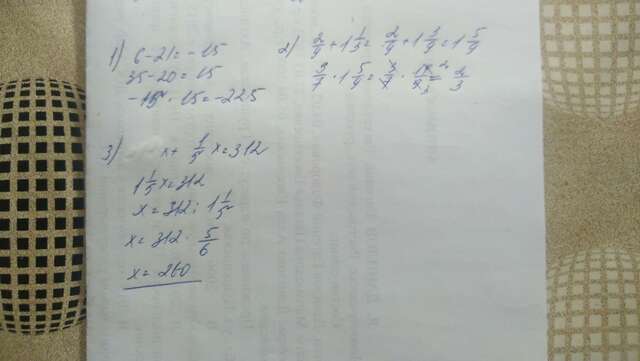 1) 6-21=-15
35-20=15
-15 · 15=-225
2) 2/9 + 1 1/3 = 2/9 + 1 3/9 = 1 5/9
3/7 · 1 5/9 = 3/7 · 14/9 = 2/3
3) x + 1/5 x = 312
1 1/5 x = 312
x = 312 : 1 1/5
x = 312 · 5/6
x = 260